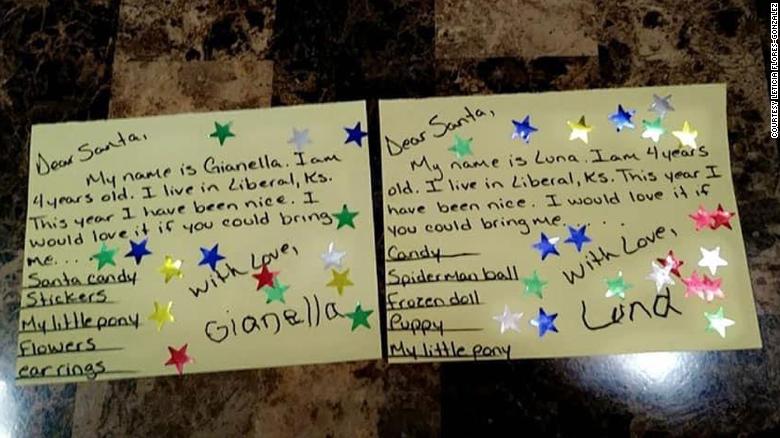 Dear Santa,
My name is Gianella. I am
4 years old. I live in Liberal, Ks.
This year I have been nice. I
would love it if you could bring
me...
Santa candy
Stickers
My little pony
Flowers
ear rings
With Love,
Gianella
Dear Santa,
My name is Luna. I am 4 years
old. I live in Liberal, Ks. This year I
have been nice. I would love it if
you could bring me.....
Candy
Spiderman ball
Frozen doll
Puppy
My little pony
With Love,
Luna
COURTESY LETICIA FLORES-GONZALEZ